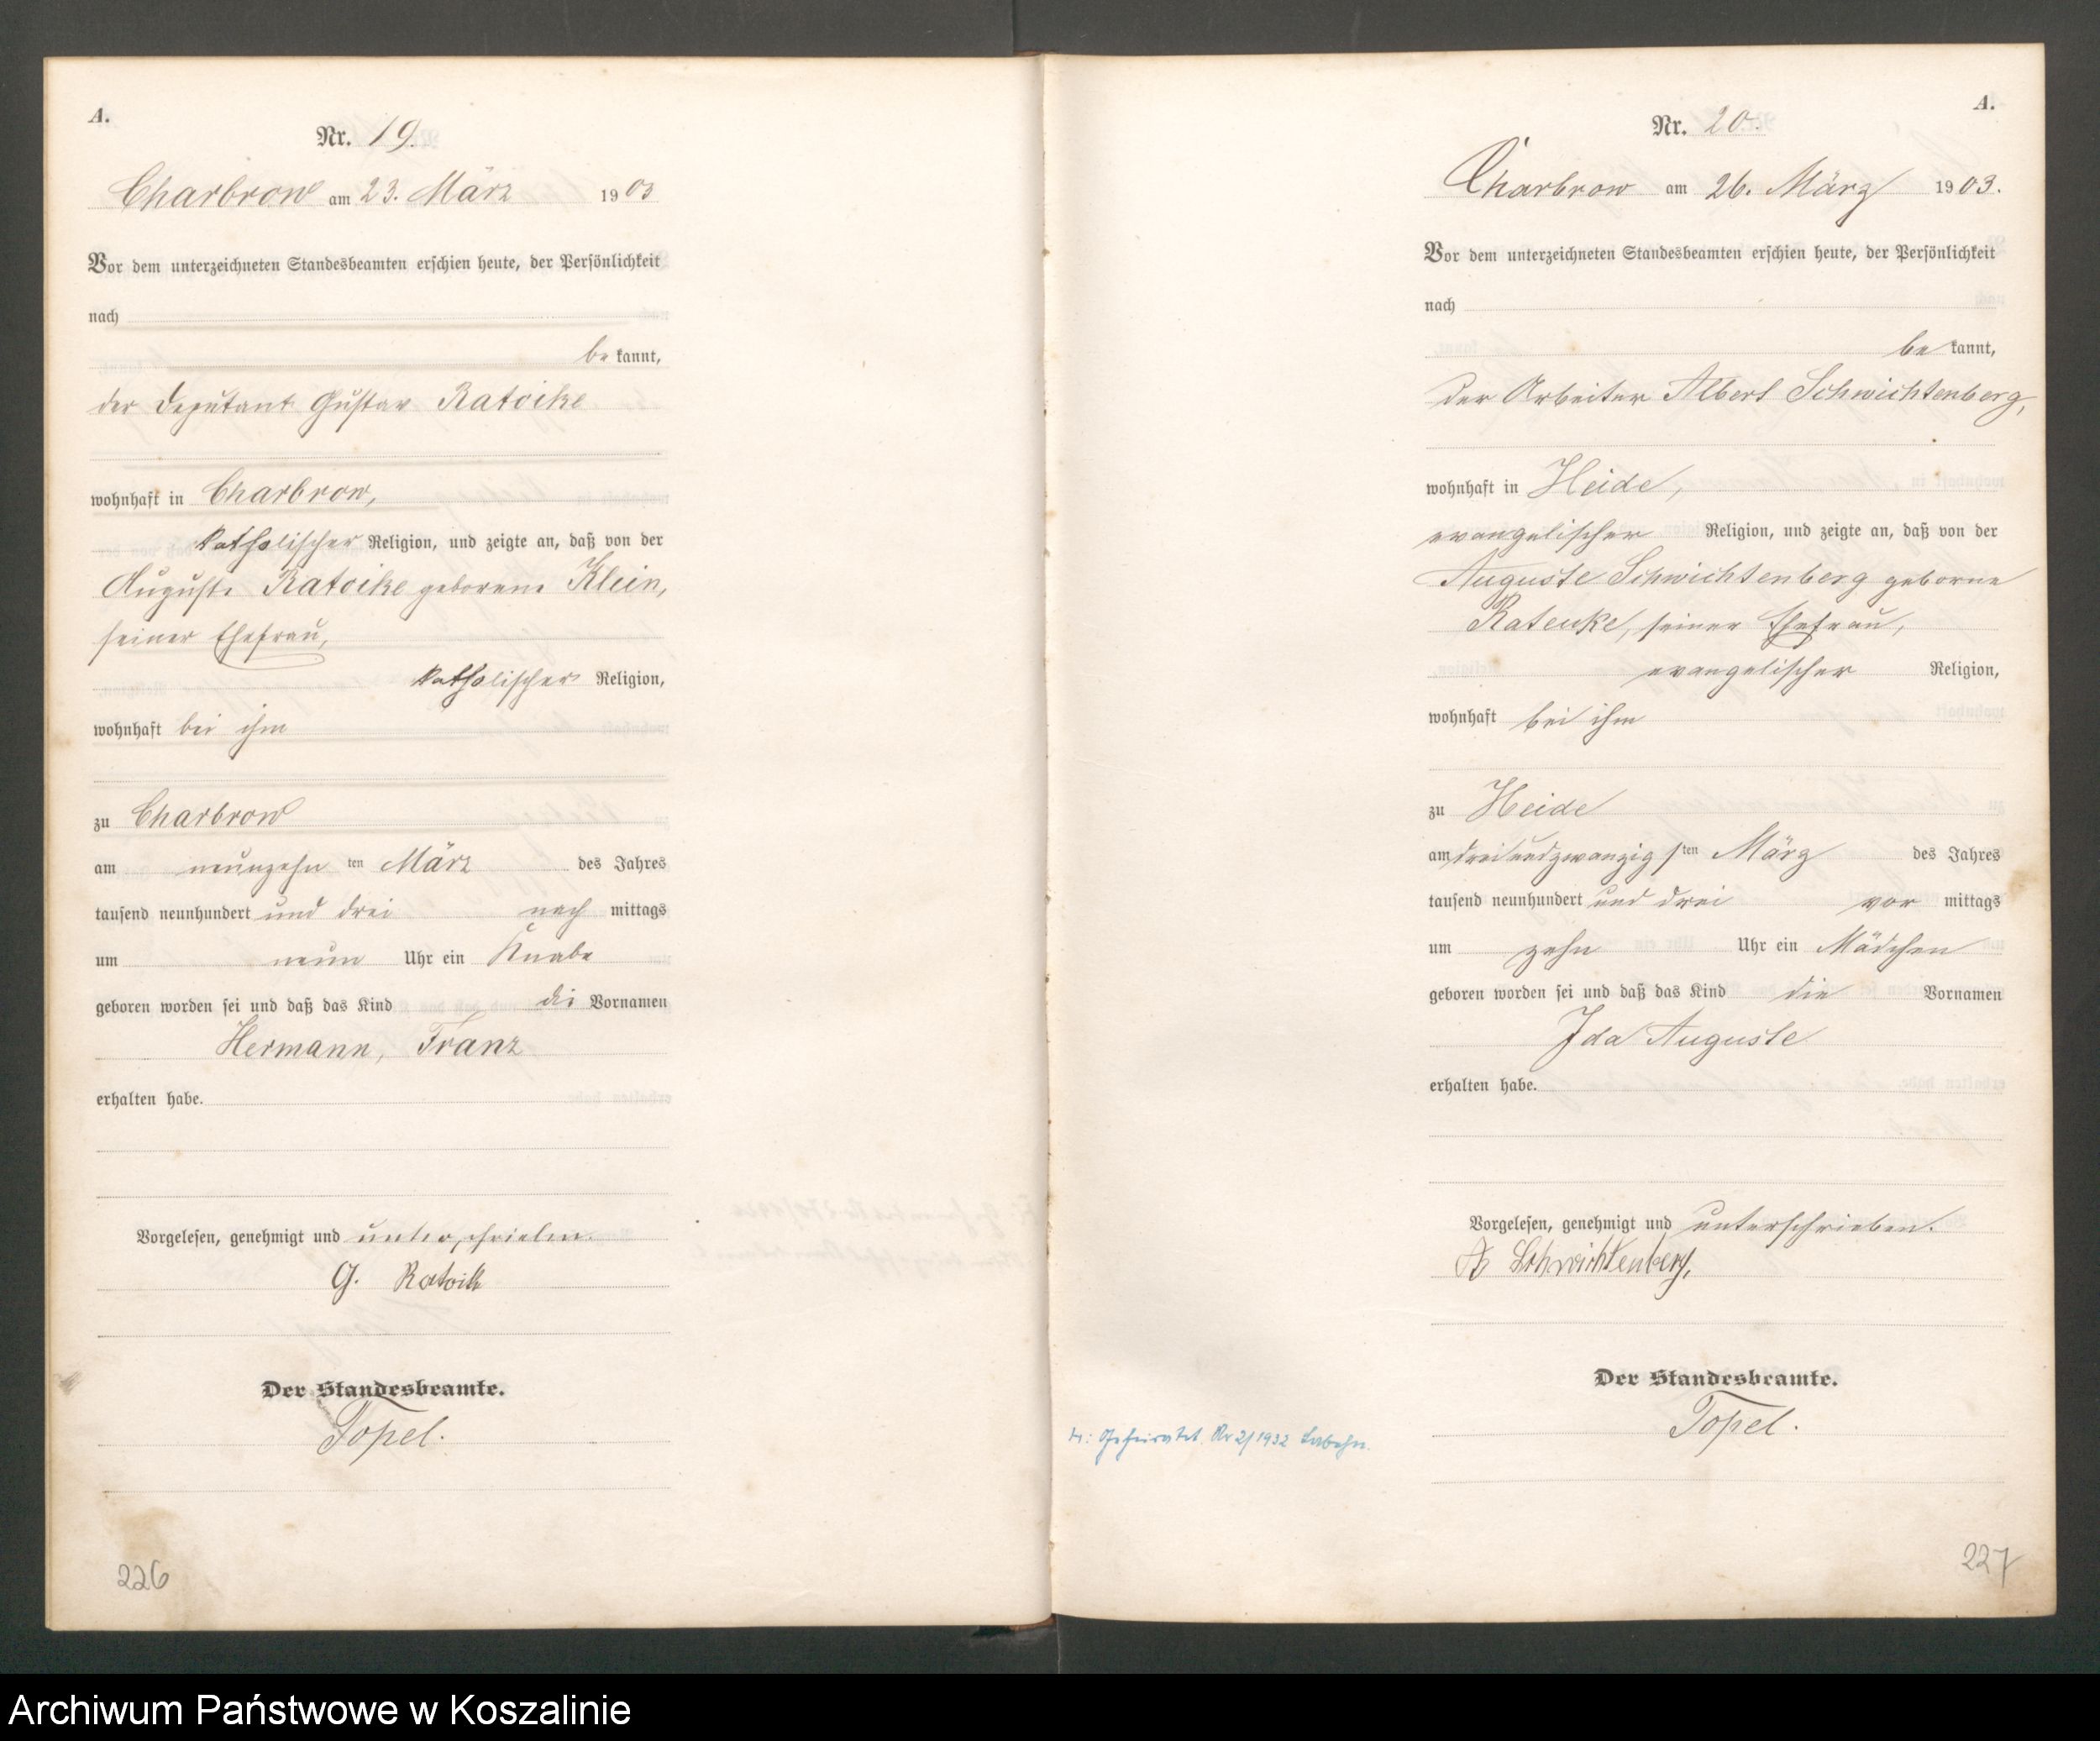 A.
Nr. 19.
Charbrow am 23. März 1903
Vor dem unterzeichneten Standesbeamten erschien heute, der Persönlichkeit
nach
be kannt,
der Deputant Gustav Ratoike
wohnhaft in Charbrow,
katholischer Religion, und zeigte an, daß von der
Auguste Ratoike geborene Klein,
seiner Ehefrau,
katholischer Religion,
wohnhaft bei ihm
zu Charbrow
am neunzehn ten März des Jahres
tausend neunhundert und drei nach mittags
um neun Uhr ein Knabe
geboren worden sei und daß das Kind die Vornamen
Hermann, Franz
erhalten habe.
Vorgelesen, genehmigt und unterschrieben.
G. Ratoik
Der Standesbeamte.
Topel.
226
A.
Nr. 20.
Charbrow am 26. März 1903.
Vor dem unterzeichneten Standesbeamten erschien heute, der Persönlichkeit
nach
be kannt,
der Arbeiter Albert Schwichtenberg,
wohnhaft in Heide,
evangelischer Religion, und zeigte an, daß von der
Auguste Schwichtenberg geborne
Rateuke, seiner Ehefrau,
evangelischer Religion,
wohnhaft bei ihm
zu Heide
am dreiundzwanzigsten März des Jahres
tausend neunhundert und drei vor mittags
um zehn Uhr ein Mädchen
geboren worden sei und daß das Kind die Vornamen
Ida Auguste
erhalten habe.
Vorgelesen, genehmigt und unterschrieben.
A Schwichtenberg,
Der Standesbeamte.
Topel.
Geheiratet Nr 2/1932 Labehn.
227
Archiwum Państwowe w Koszalinie